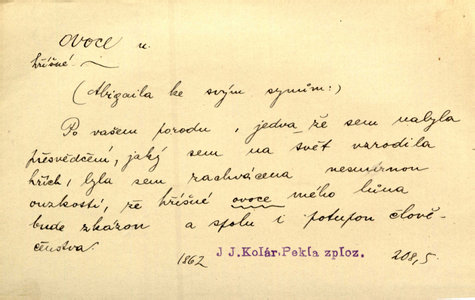 ovoce n.
hříšné
(Abigaila ke svým synům:)
Po vašem porodu, jedva že sem nabyla
přesvědčení, jaký sem na svět vzrodila
hřích, byla sem zachvácena nesmírnou
ouzkostí, že hříšné ovoce mého lůna
bude zkázou a spolu i potupou člově-
čenstva
1862 J J. Kolár. Pekla zploz. 208,5.